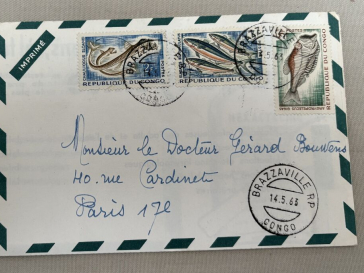 IMPRIMÉ
BRAZZAVILLE
REPUBLIQUE DU CONGO
REPUBLIQUE DU CONGO
BRAZZAVILLE RP
.5.63
REPUBLIQUE DU CONGO
Monsieur le Docteur Gérard Bouwens
40. rue Cardinet
Paris 17e
BRAZZAVILLE RP
14.5.63
CONGO